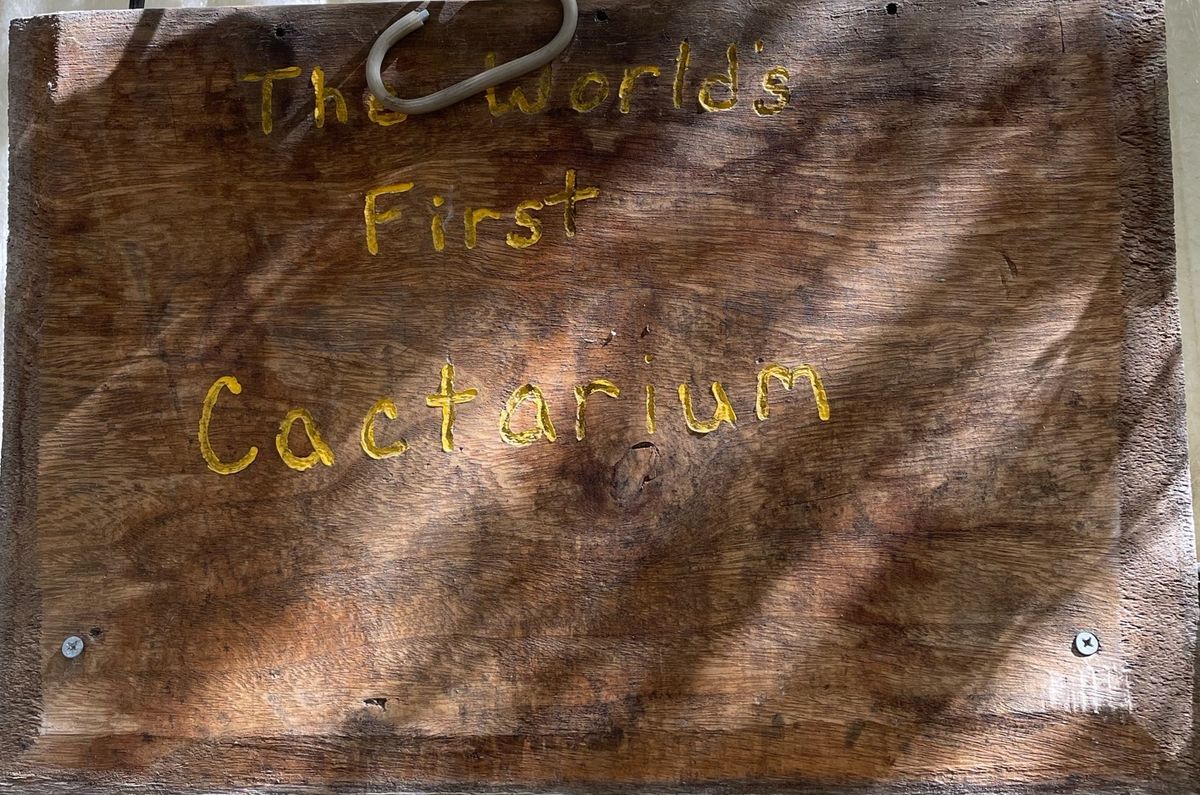 The World's
First
Cactarium